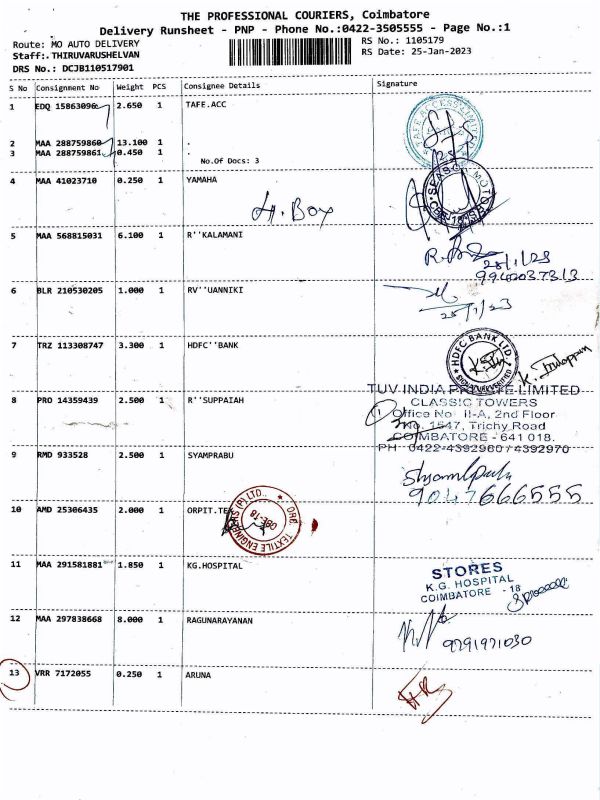 THE PROFESSIONAL COURIERS, Coimbatore
Delivery Runsheet - PNP - Phone No.:0422-3505555 - Page No.:1
Route: MO AUTO DELIVERY
RS No.: 1105179
Staff:.THIRUVARUSHELVAN
RS Date: 25-Jan-2023
DRS No.: DCJB110517901
S No Consignment No Weight PCS Consignee Details Signature
1 EDQ 15863096 2.650 1 TAFE.ACC
2 MAA 288759860 13.100 1 .
3 MAA 288759861 0.450 1 .
No.Of Docs: 3
4 MAA 41023710 0.250 1 YAMAHA
H. Box
5 MAA 568815031 6.100 1 R''KALAMANI
25/1/23
6 BLR 210530205 1.000 1 RV''UANNIKI
25/1/23
7 TRZ 113308747 3.300 1 HDFC''BANK
HDFC BANK LTD.
TUV INDIA PRIVATE LIMITED
CLASSIC TOWERS
8 PRO 14359439 2.500 1 R''SUPPAIAH
Office No II-A, 2nd Floor
No. 1547, Trichy Road
COIMBATORE - 641 018.
PH 0422-4392960 / 4392970
9 RMD 933528 2.500 1 SYAMPRABU
9047666555
10 AMD 25306435 2.000 1 ORPIT.TEX
ORC TEXTILE ENGINEERS (P) LTD.,
CBE-18
11 MAA 291581881 1.850 1 KG.HOSPITAL
STORES
K.G. HOSPITAL
COIMBATORE - 18
12 MAA 297838668 8.000 1 RAGUNARAYANAN
9291971030
13 VRR 7172055 0.250 1 ARUNA